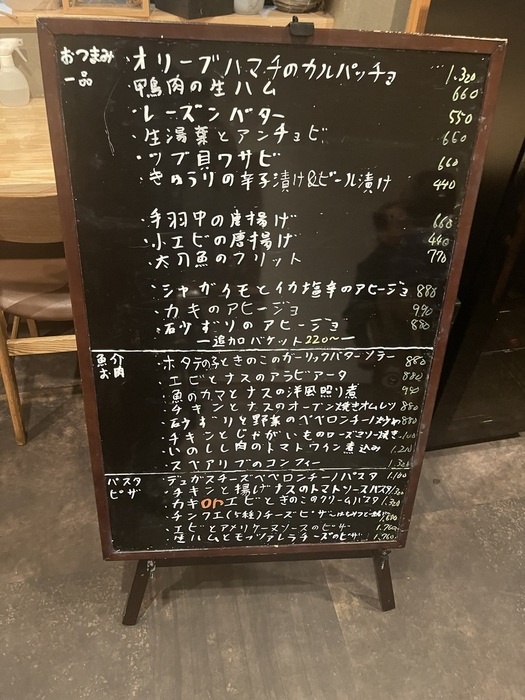 おつまみ
一品
・オリーブハマチのカルパッチョ 1.320
・鴨肉の生ハム 660
・レーズンバター 550
・生湯葉とアンチョビ 660
・ツブ貝ワサビ 660
・きゅうりの辛子漬け&ビール漬け 440
・手羽中の唐揚げ 660
・小エビの唐揚げ 440
・太刀魚のフリット 770
・ジャガイモとイカ塩辛のアヒージョ 880
・カキのアヒージョ 990
・砂ずりのアヒージョ 880
ー追加バケット 220〜ー
魚介
お肉
・ホタテの子ときのこのガーリックバターソテー 880
・エビとナスのアラビアータ 880
・魚のカマとナスの洋風照り煮
・チキンとナスのオーブン焼きオムレツ 880
・砂ずりと野菜のペペロンチーノ炒め 880
・チキンとじゃがいものローズマリー焼き
・いのしし肉のトマトワイン煮込み
・スペアリブのコンフィー
パスタ
ピザ
・デュカスチーズペペロンチーノパスタ 1.100
・チキンと揚げナスのトマトソースパスタ
・カキorエビときのこのクリームパスタ
・チンクエ(5種)チーズピザ
・エビとアメリケーヌソースのピザ 1.760
・生ハムとモッツァレラチーズのピザ 1.760